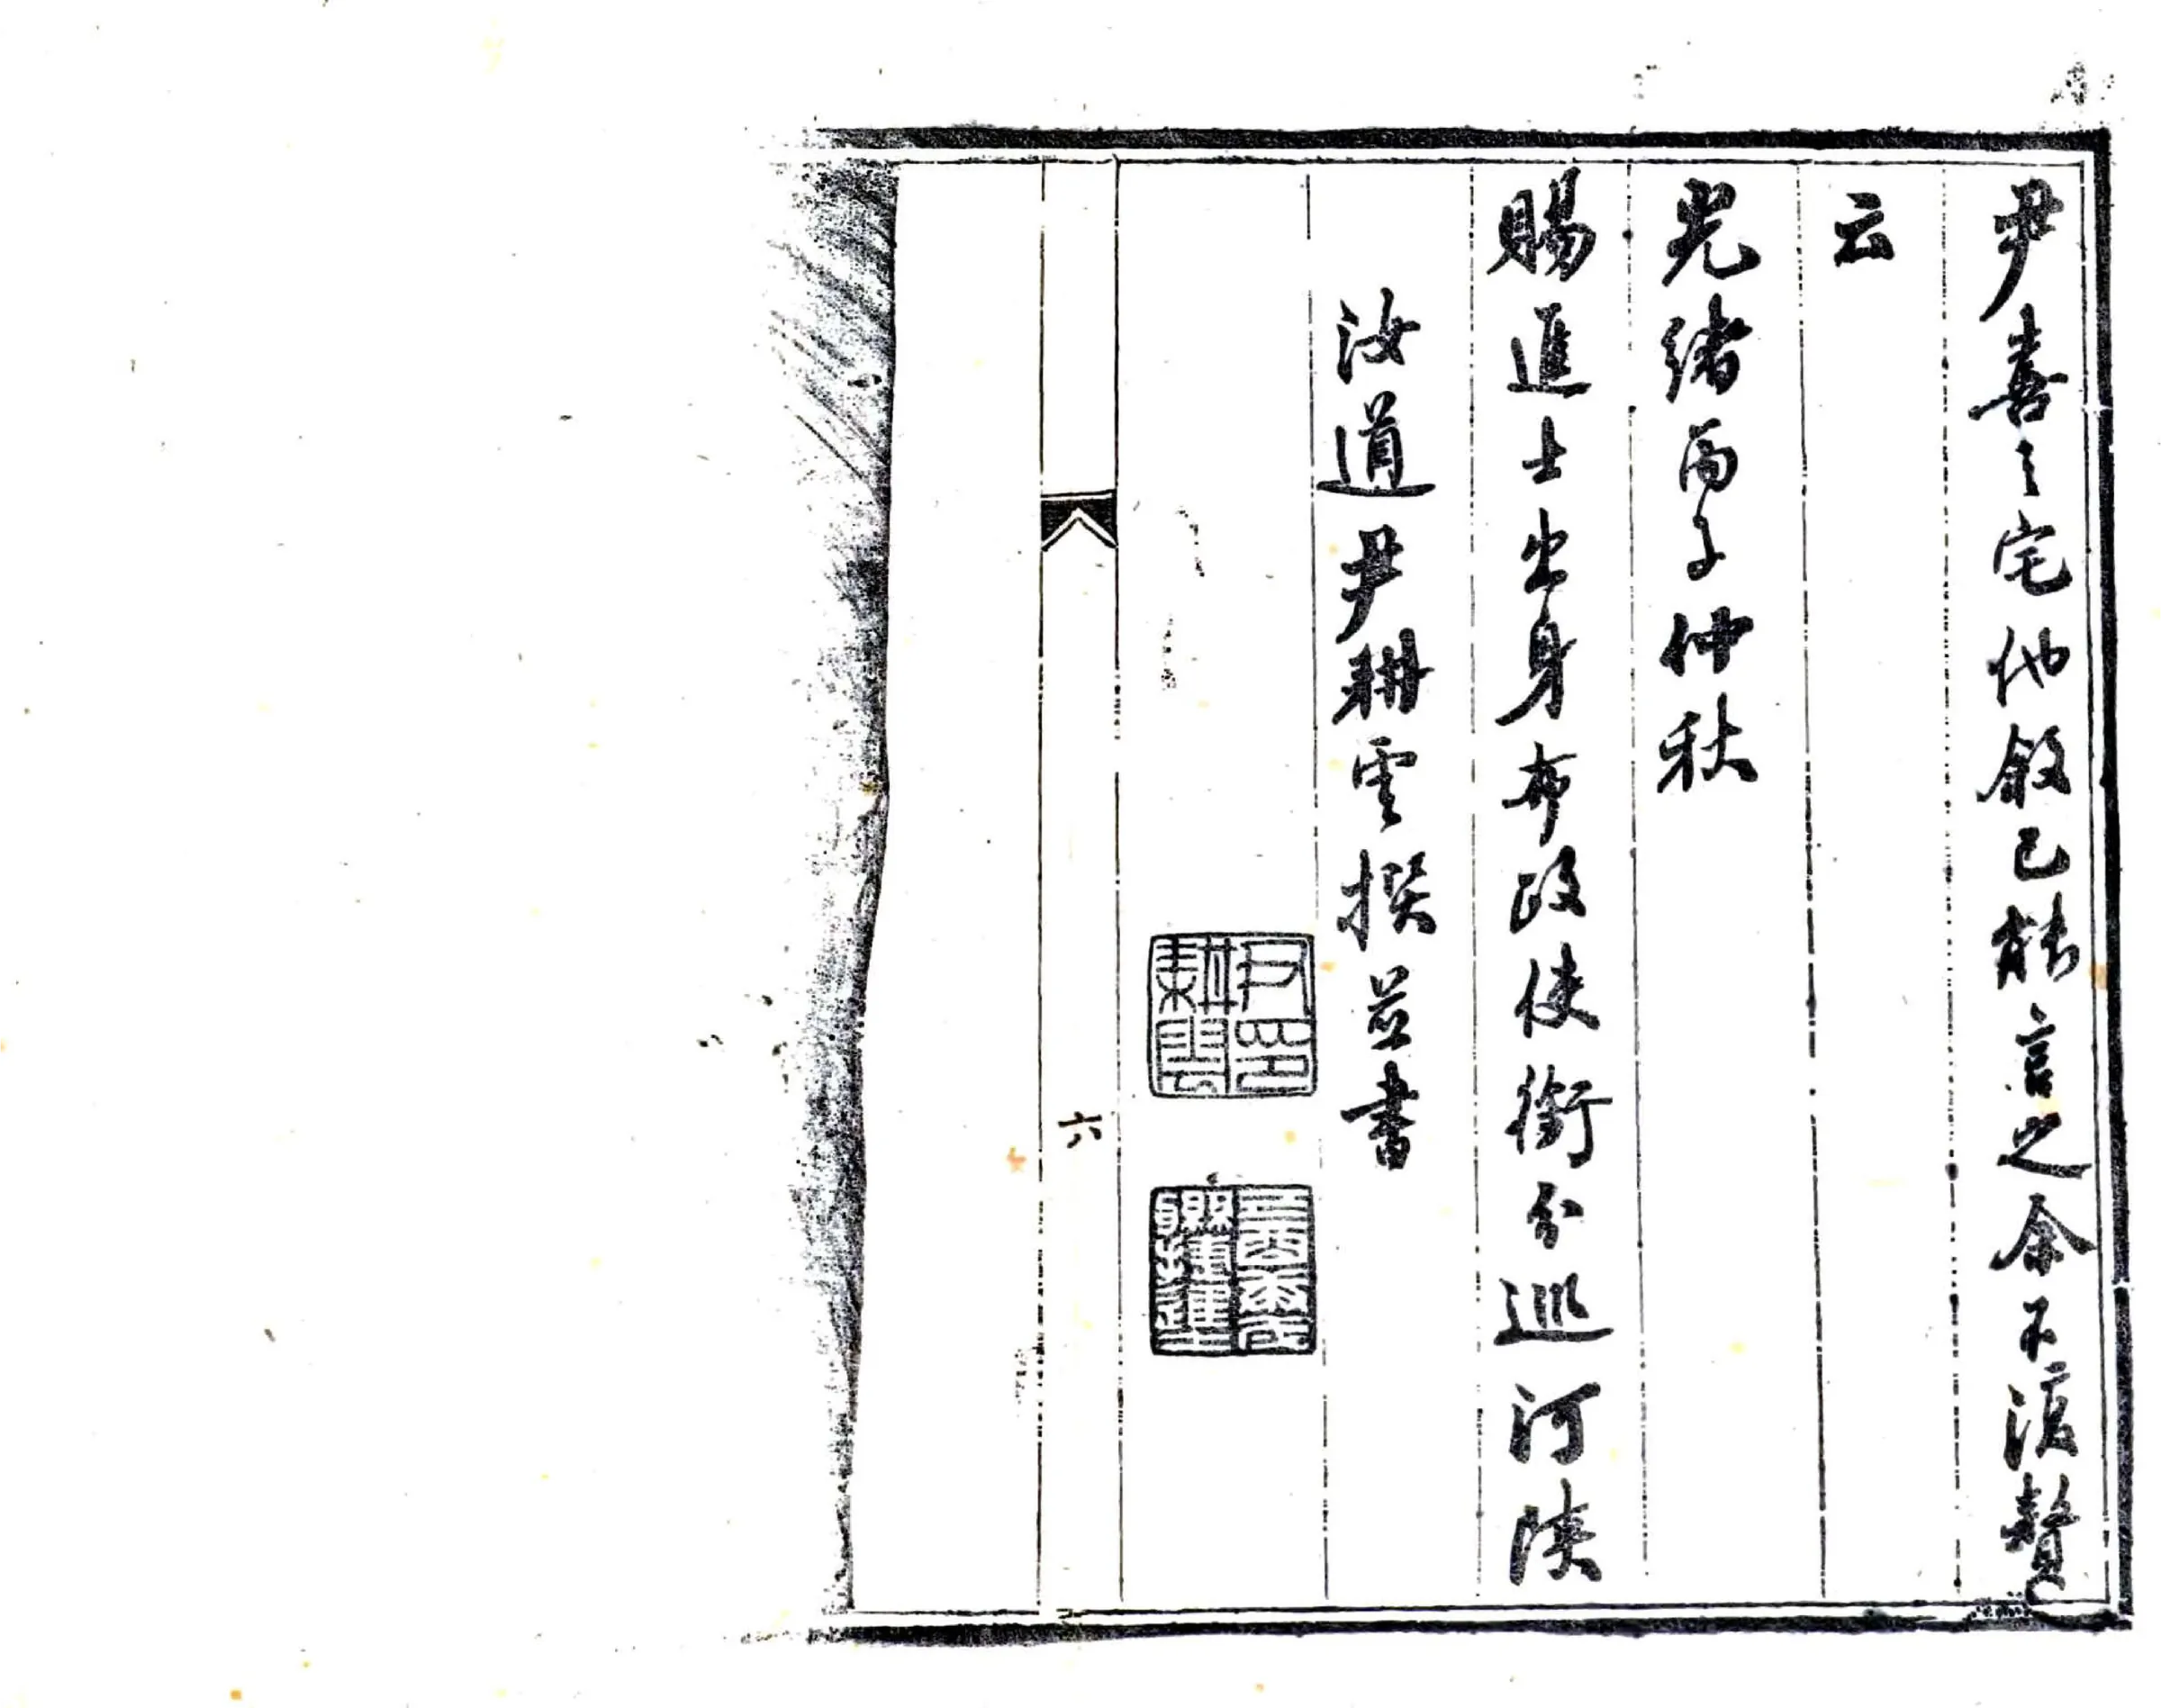 尹喜之宅他敘已能言之余不復贅
云
光緒丙子仲秋
賜進士出身布政使銜分巡河陝
汝道尹耕雲撰並書
尹印耕雲
六